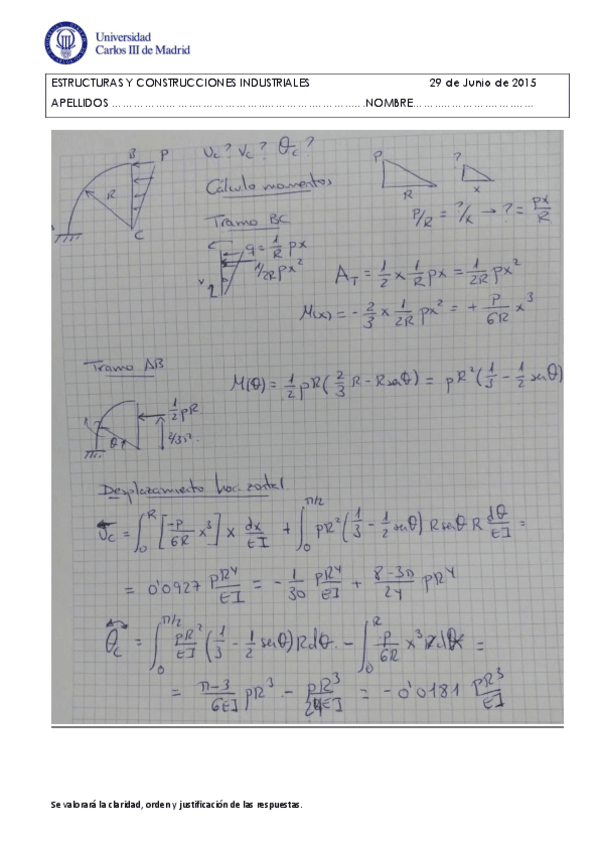 Universidad
Carlos III de Madrid
ESTRUCTURAS Y CONSTRUCCIONES INDUSTRIALES 29 de Junio de 2015
APELLIDOS ..............................................................NOMBRE..............................
B P
R
C
Uc? Vc? θc?
Cálculo momentos
P
R
?
x
P/R = ?/x → ? = px/R
Tramo BC
C q = 1/R px
1/2R px²
x
A_T = 1/2 x 1/R px = 1/2R px²
M(x) = - 2/3 x 1/2R px² = + P/6R x³
Tramo AB
1/2 pR
2/3R
θ
M(θ) = 1/2 pR (2/3 R - R senθ) = pR² (1/3 - 1/2 senθ)
Desplazamiento horizontal
Uc = ∫₀^R [-P/6R x³] x dx/EI + ∫₀^π/2 pR² (1/3 - 1/2 senθ) R senθ R dθ/EI =
= 0'0927 pR⁴/EI = - 1/30 pR⁴/EI + 8-3π/24 pR⁴
θc = ∫₀^π/2 pR²/EI (1/3 - 1/2 senθ) R dθ - ∫₀^R P/6R x³ dx =
= π-3/6EI pR³ - pR³/24EI = - 0'0181 pR³/EI
Se valorará la claridad, orden y justificación de las respuestas.